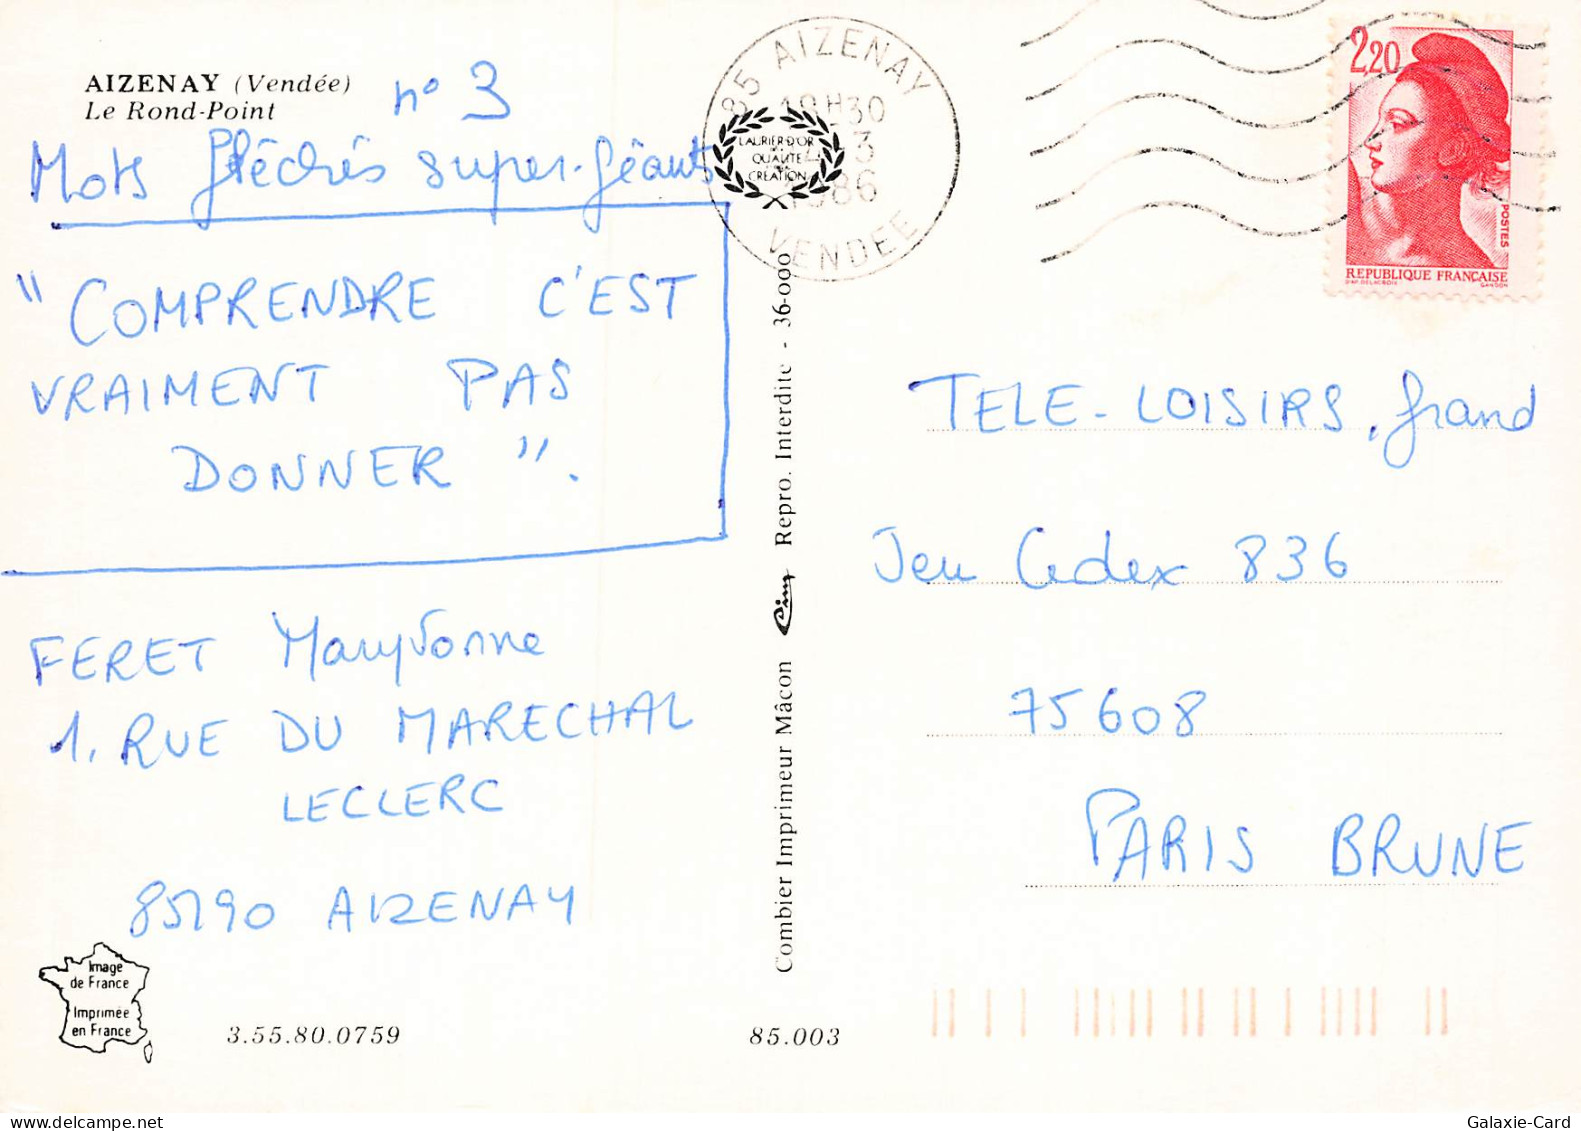 AIZENAY (Vendée)
Le Rond-Point
n° 3
Mots fléchés super-géants
"COMPRENDRE C'EST
VRAIMENT PAS
DONNER".
FERET Maryvonne
1, RUE DU MARECHAL
LECLERC
85190 AIZENAY
Image
de France
Imprimée
en France
3.55.80.0759
85 AIZENAY
VENDEE
1986
LAURIER D'OR
QUALITE
CREATION
Combier Imprimeur Mâcon Cim Repro. Interdite - 36-000
85.003
2,20
POSTES
REPUBLIQUE FRANÇAISE
D'AP. DELACROIX
GANDON
TELE-LOISIRS, grand
Jeu Cedex 836
75608
PARIS BRUNE
Galaxie-Card